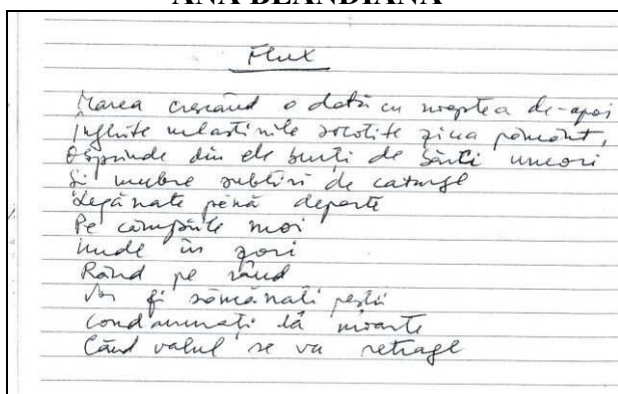 ANA BLANDIANA
Flux
Marea crescând o dată cu noaptea de-apoi
Înghite mlaștinile socotite ziua pământ,
Desprinde din ele bunți de bărci uneori
Și umbre subțiri de catarge
Legănate până departe
Pe câmpiile moi
Unde în zori
Rând pe rând
Vor fi sămănați peștii
Condamnați la moarte
Când valul se va retrage